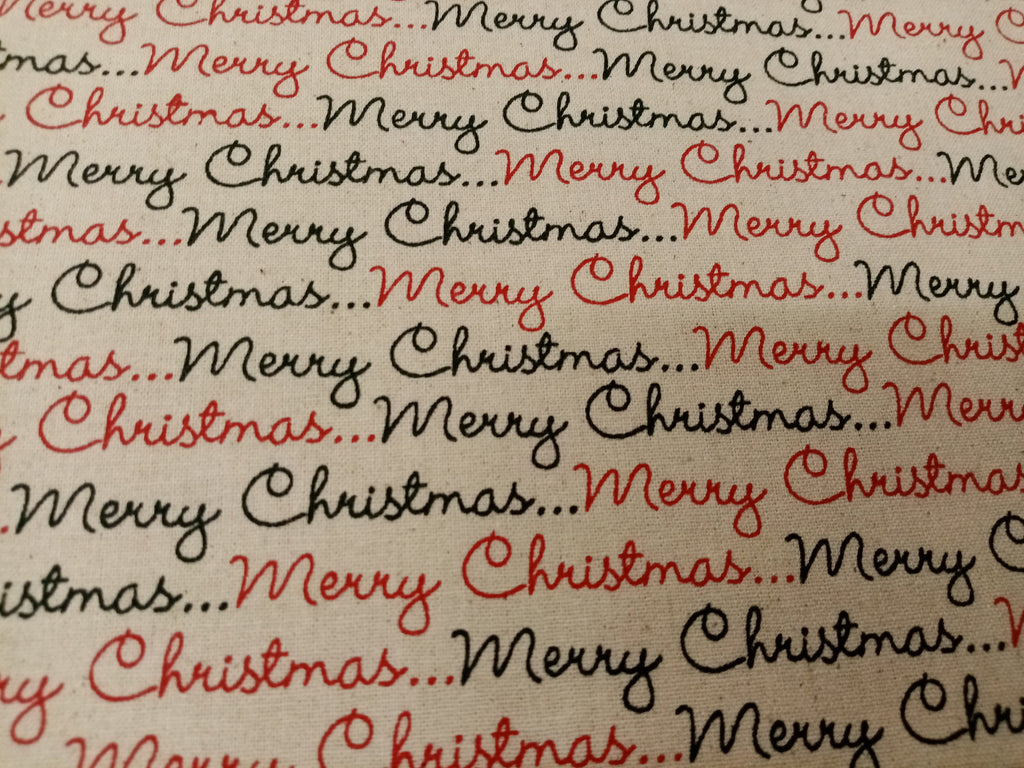 Merry Christmas...Merry Christmas...Merry
...Merry Christmas...Merry Christmas...
Christmas...Merry Christmas...Merry
Merry Christmas...Merry Christmas...
...Merry Christmas...Merry
Christmas...Merry Christmas...Merry
...Merry Christmas...Merry
Christmas...Merry Christmas...
...Merry Christmas...Merry Christmas
...Merry Christmas...Merry
Christmas...Merry Christmas...
Merry Christmas...Merry